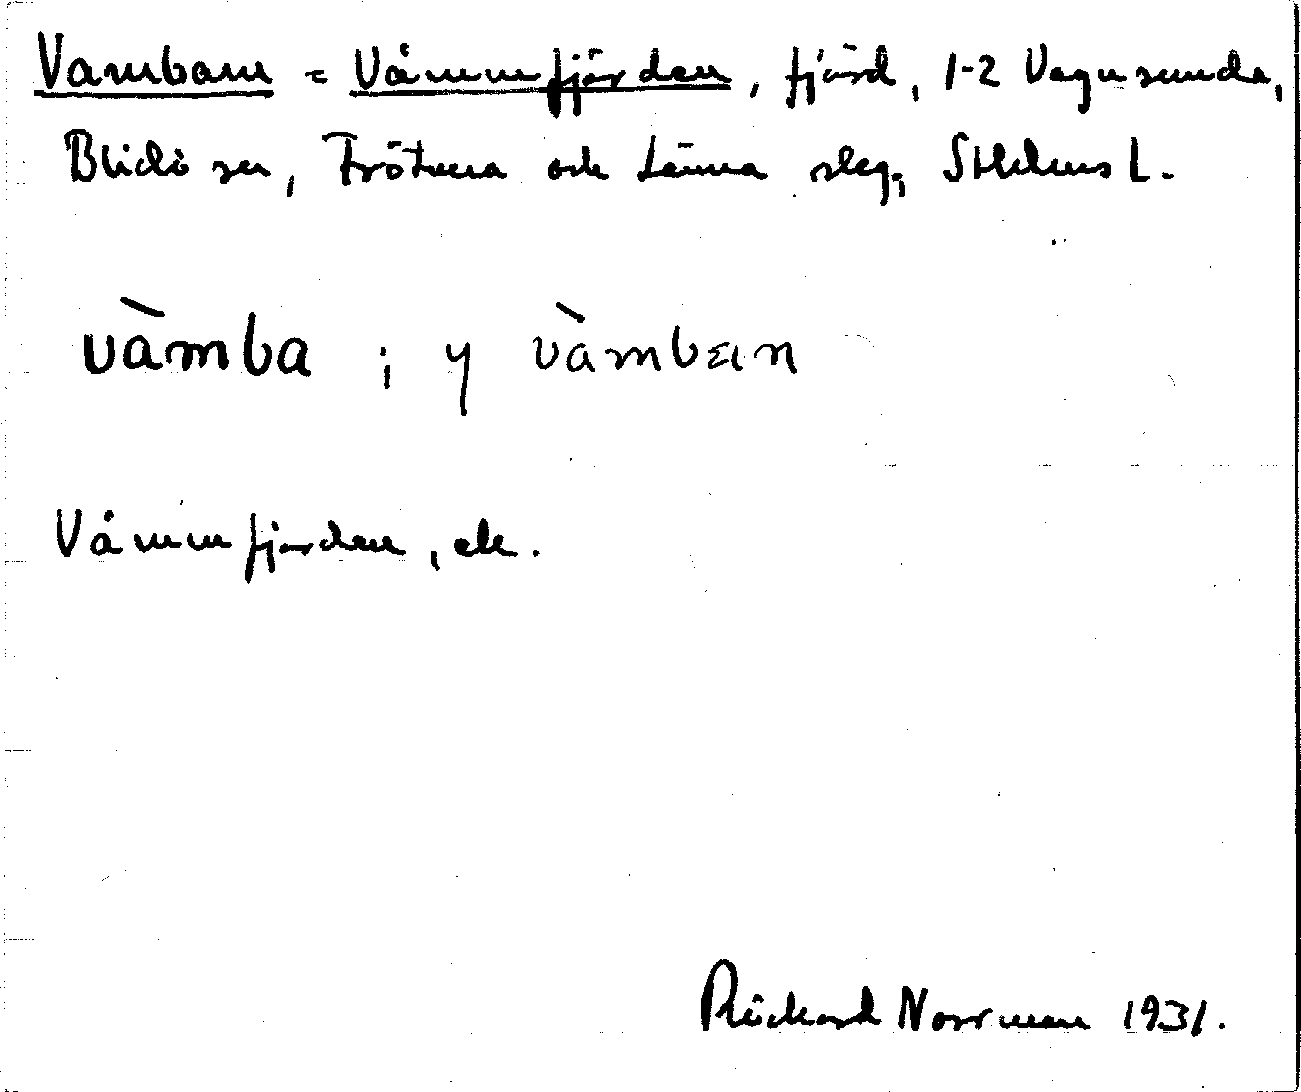 Vambam = Våmmfjärden, fjärd, 1-2 Vagnsunda,
Blidö sn, Frötuna och Länna skg, Sthlms L.
vàmba ; y vàmban
Våmmfjärden, ek.
Rickard Norrman 1931.